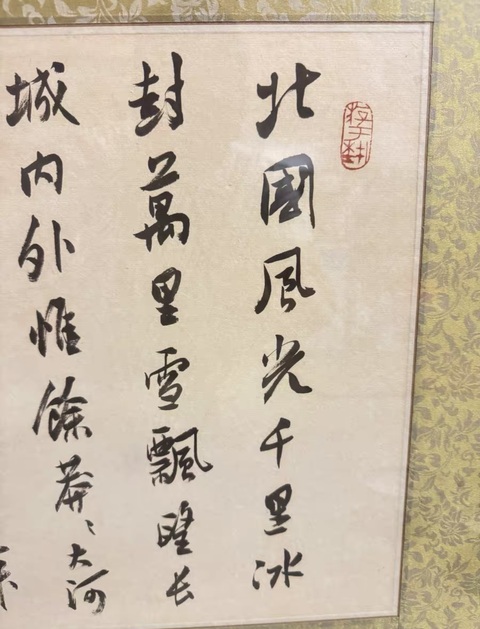 北國風光千里冰
封萬里雪飄望長
城内外惟餘莽〻大河